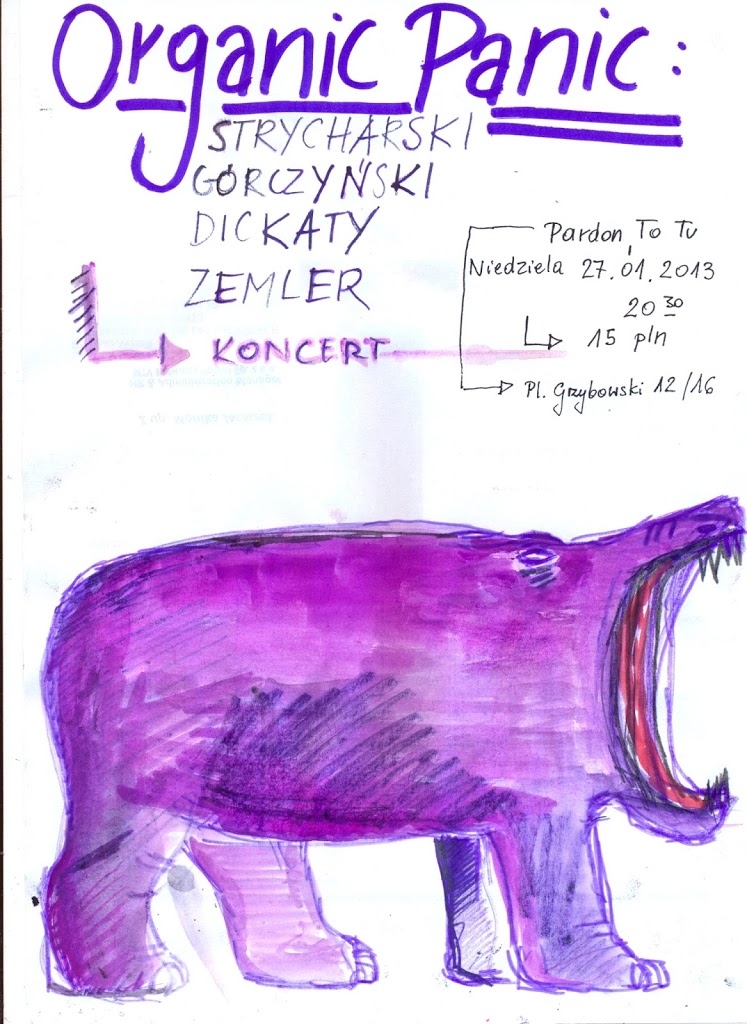 Organic Panic:
STRYCHARSKI
GÓRCZYŃSKI
DICKATY
ZEMLER
KONCERT
Pardon, To Tu
Niedziela 27.01.2013
20 30
15 pln
Pl. Grzybowski 12/16